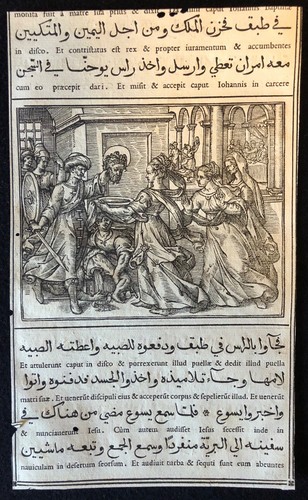 monita fuit a matre sua prius & dixit
في طبق فحزن الملك ومن اجل اليمين والمتكيين
in disco. Et contristatus est rex & propter iuramentum & accumbentes
معه امران تعطي وارسل واخذ راس يوحنا في السجن
cum eo præcepit dari. Et misit & accepit caput Iohannis in carcere
فجاوا بالراس في طبق ودفعوه للصبيه واعطته الصبيه
Et attulerunt caput in disco & porrexerunt illud puellæ & dedit illud puella
لامها وجاء تلاميذه واخذوا الجسد فدفنوه واتوا
matri suæ. Et uenerūt discipuli eius & acceperūt corpus & sepelierūt illud. Et uenerūt
واخبروا يسوع * فلما سمع يسوع مضي من هناك في
& nunciauerunt Iesu. Cùm autem audisset Iesus secessit inde in
سفينه الي البرية منفردا وسمع الجمع وتبعه ماشيين
nauiculam in desertum seorsum. Et audiuit turba & sequti sunt eum abeuntes